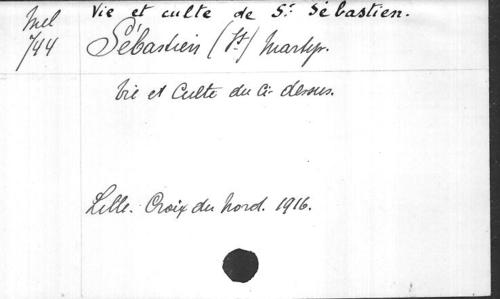 Mel
744
Vie et culte de St Sébastien.
Sébastien (St) Martyr.
Vie et Culte du Ci-dessus.
Lille. Croix du Nord. 1916.